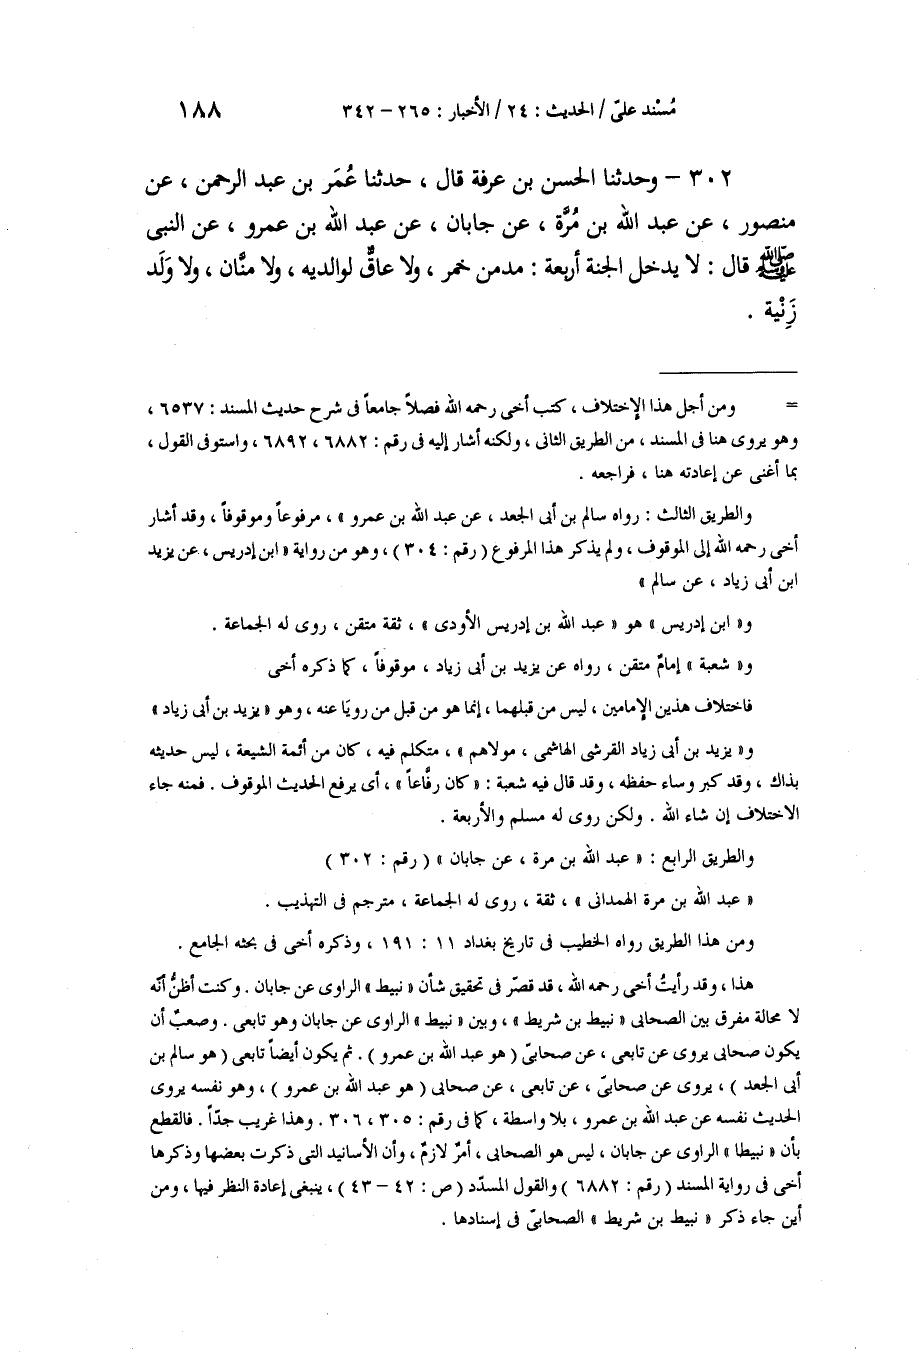 مُسْند علىّ / الحديث : ٢٤ / الأخبار : ٢٦٥ – ٣٤٢ ١٨٨
٣٠٢ – وحدثنا الحسن بن عرفة قال ، حدثنا عُمَر بن عبد الرحمن ، عن
منصور ، عن عبد الله بن مُرَّة ، عن جابان ، عن عبد الله بن عمرو ، عن النبى
ﷺ قال : لا يدخل الجنة أربعة : مدمن خمر ، ولا عاقٌّ لوالديه ، ولا منَّان ، ولا وَلَد
زَِنْية .
= ومن أجل هذا الإختلاف ، كتب أخى رحمه الله فصلاً جامعاً فى شرح حديث المسند : ٦٥٣٧ ،
وهو يروى هنا فى المسند ، من الطريق الثانى ، ولكنه أشار إليه فى رقم : ٦٨٨٢ ، ٦٨٩٢ ، واستوفى القول ،
بما أغنى عن إعادته هنا ، فراجعه .
والطريق الثالث : رواه سالم بن أبى الجعد ، عن عبد الله بن عمرو » ، مرفوعاً وموقوفاً ، وقد أشار
أخى رحمه الله إلى الموقوف ، ولم يذكر هذا المرفوع ( رقم : ٣٠٤ ) ، وهو من رواية « ابن إدريس ، عن يزيد
ابن أبى زياد ، عن سالم »
و « ابن إدريس » هو « عبد الله بن إدريس الأودى » ، ثقة متقن ، روى له الجماعة .
و « شعبة » إمامٌ متقن ، رواه عن يزيد بن أبى زياد ، موقوفاً ، كما ذكره أخى
فاختلاف هذين الإمامين ، ليس من قبلهما ، إنما هو من قبل من رويَا عنه ، وهو « يزيد بن أبى زياد »
و « يزيد بن أبى زياد القرشى الهاشمى ، مولاهم » ، متكلم فيه ، كان من أئمة الشيعة ، ليس حديثه
بذاك ، وقد كبر وساء حفظه ، وقد قال فيه شعبة : « كان رفَّاعاً » ، أى يرفع الحديث الموقوف . فمنه جاء
الاختلاف إن شاء الله . ولكن روى له مسلم والأربعة .
والطريق الرابع : « عبد الله بن مرة ، عن جابان » ( رقم : ٣٠٢ )
« عبد الله بن مرة الهمدانى » ، ثقة ، روى له الجماعة ، مترجم فى التهذيب .
ومن هذا الطريق رواه الخطيب فى تاريخ بغداد ١١ : ١٩١ ، وذكره أخى فى بحثه الجامع .
هذا ، وقد رأيتُ أخى رحمه الله ، قد قصّر فى تحقيق شأن « نبيط » الراوى عن جابان . وكنت أظنُّ أنّه
لا محالة مفرق بين الصحابى « نبيط بن شريط » ، وبين « نبيط » الراوى عن جابان وهو تابعى . وصعبٌ أن
يكون صحابى يروى عن تابعى ، عن صحابىّ ( هو عبد الله بن عمرو ) . ثم يكون أيضاً تابعى ( هو سالم بن
أبى الجعد ) ، يروى عن صحابىّ ، عن تابعى ، عن صحابى ( هو عبد الله بن عمرو ) ، وهو نفسه يروى
الحديث نفسه عن عبد الله بن عمرو ، بلا واسطة ، كما فى رقم : ٣٠٥ ، ٣٠٦ . وهذا غريب جدّاً . فالقطع
بأن « نبيطا » الراوى عن جابان ، ليس هو الصحابى ، أمرٌ لازمٌ ، وأن الأسانيد التى ذكرت بعضها وذكرها
أخى فى رواية المسند ( رقم : ٦٨٨٢ ) والقول المسدّد ( ص : ٤٢ – ٤٣ ) ، ينبغى إعادة النظر فيها ، ومن
أين جاء ذكر « نبيط بن شريط » الصحابىّ فى إسنادها .